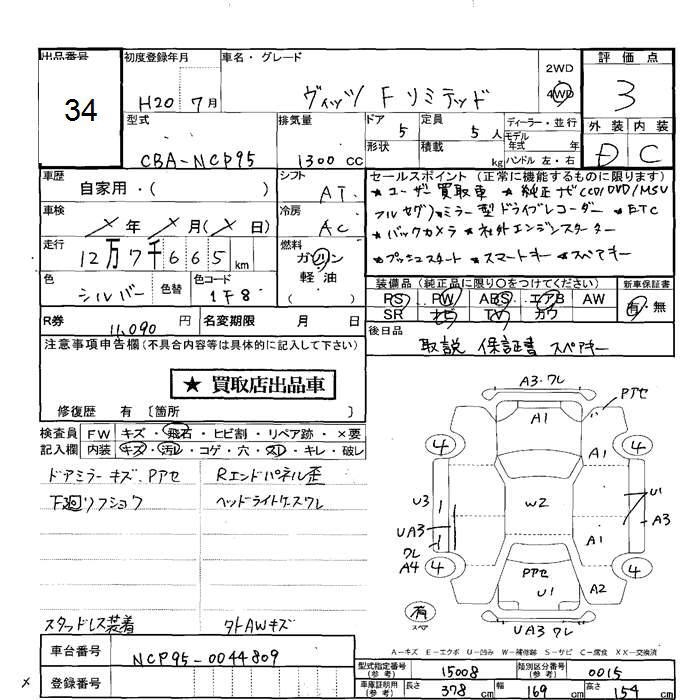 出品番号 34
初度登録年月 H20 7月
車名・グレード ヴィッツ F リミテッド
2WD
4WD
評価点 3
型式 CBA-NCP95
排気量 1300 cc
ドア 5
定員 5人
形状
積載 kg
ディーラー・並行
モデル年式 年式
ハンドル 左・右
外装 D
内装 C
車歴 自家用・( )
シフト AT
車検 × 年 × 月( × 日)
冷房 AC
走行 12万7千665 km
燃料 ガソリン
軽油
( )
色 シルバー 色替
色コード 1F8
セールスポイント (正常に機能するものに限ります)
★ユーザー買取車 ★純正ナビ(CD/DVD/MSV
フルセグ)★ミラー型ドライブレコーダー ★ETC
★バックカメラ ★社外エンジンスターター
★プッシュスタート ★スマートキー ★スペアキー
装備品 (純正品に限り○をつけてください)
PS PW ABS エアB AW
SR ナビ TV カワ
新車保証書 有・無
R券 11,090 円
名変期限 月 日
後日品 取説 保証書 スペアキー
注意事項申告欄 (不具合内容等は具体的に記入して下さい)
★ 買取店出品車
修復歴 有 〔箇所 〕
検査員 FW キズ・飛石・ヒビ割・リペア跡・×要
記入欄 内装 キズ・汚レ・コゲ・穴・スレ・キレ・破レ
ドアミラーキズ、Pアセ Rエンドパネル歪
F廻リフショク ヘッドライトケースワレ
スタッドレス装着 タトAWキズ
A3・ワレ
Pアセ
A1
4 4
A1
U3
W2
U1
A3
UA3
ワレ
A1
A4 4 4
Pアセ
U1
A2
有
スペア
UA3ワレ
A-キズ E-エクボ U-凹み W-補修跡 S-サビ C-腐食 XX-交換済
車台番号 NCP95-0044809
× 登録番号
型式指定番号(参考) 15008
類別区分番号(参考) 0015
車庫証明用(参考) 長さ 378 cm 幅 169 cm 高さ 154 cm